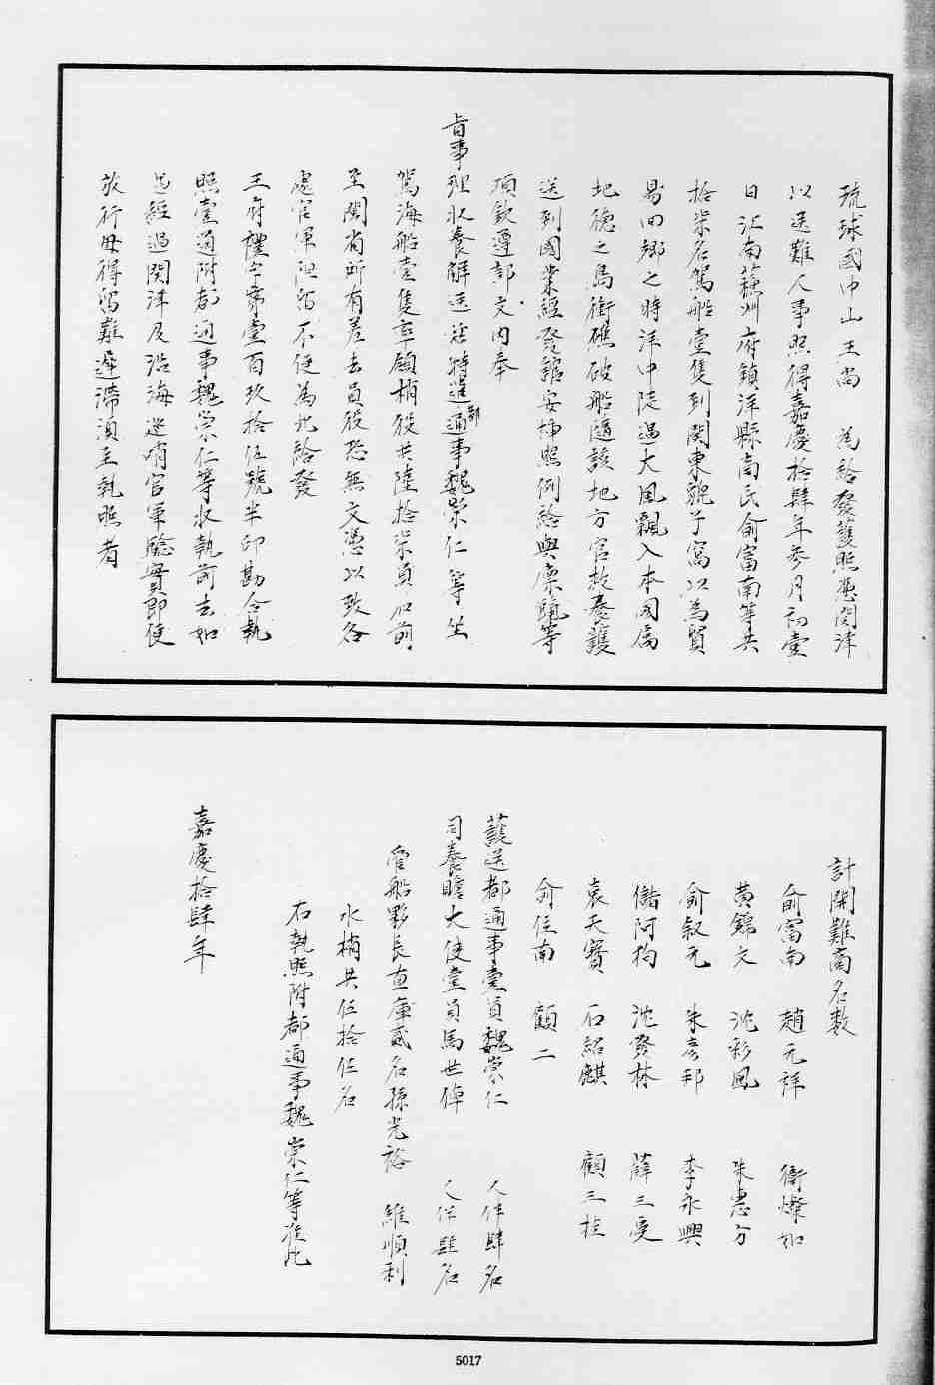 琉球國中山王尚　為給發護照應關津
以送難人事照得嘉慶拾肆年參月初壹
日江南蘇州府鎮洋縣商民俞富南等共
拾柒名駕船壹隻到関東
易回鄉之時洋中陡遇大風飄入本國屬
地德之島衝礁破船隨該地方官救養護
送到國業經發舘安揷照例給與廩餼等
項欽遵部文內奉
旨事理收養解送
都通事魏崇仁等坐
駕海船壹隻率領梢役共陸拾柒員名前
至閩省所有差去員役恐無文憑以致各
處官軍阻留不便為此給發
王府禮字第壹百玖拾伍號半印勘合執
照壹道附都通事魏崇仁等收執前去如
遇經過関津及沿海巡哨官軍驗實即便
放行毋得留難遲滯須至執照者
計開難商名數
俞富南　趙元祥　衛燦如
黃錦文　沈彩鳳　朱惠方
俞叙元　朱彦邦　李永興
儲阿狗　沈發林　薛三受
袁天寶　石紹麒　顧三
俞任南　顧二
護送都通事壹員魏崇仁　人伴肆名
司養贍大使壹員馬世倬　人伴肆名
管船夥長直庫貳名孫光裕　維順利
水梢共伍拾伍名
右執照附都通事魏崇仁等准此
嘉慶拾肆年
5017